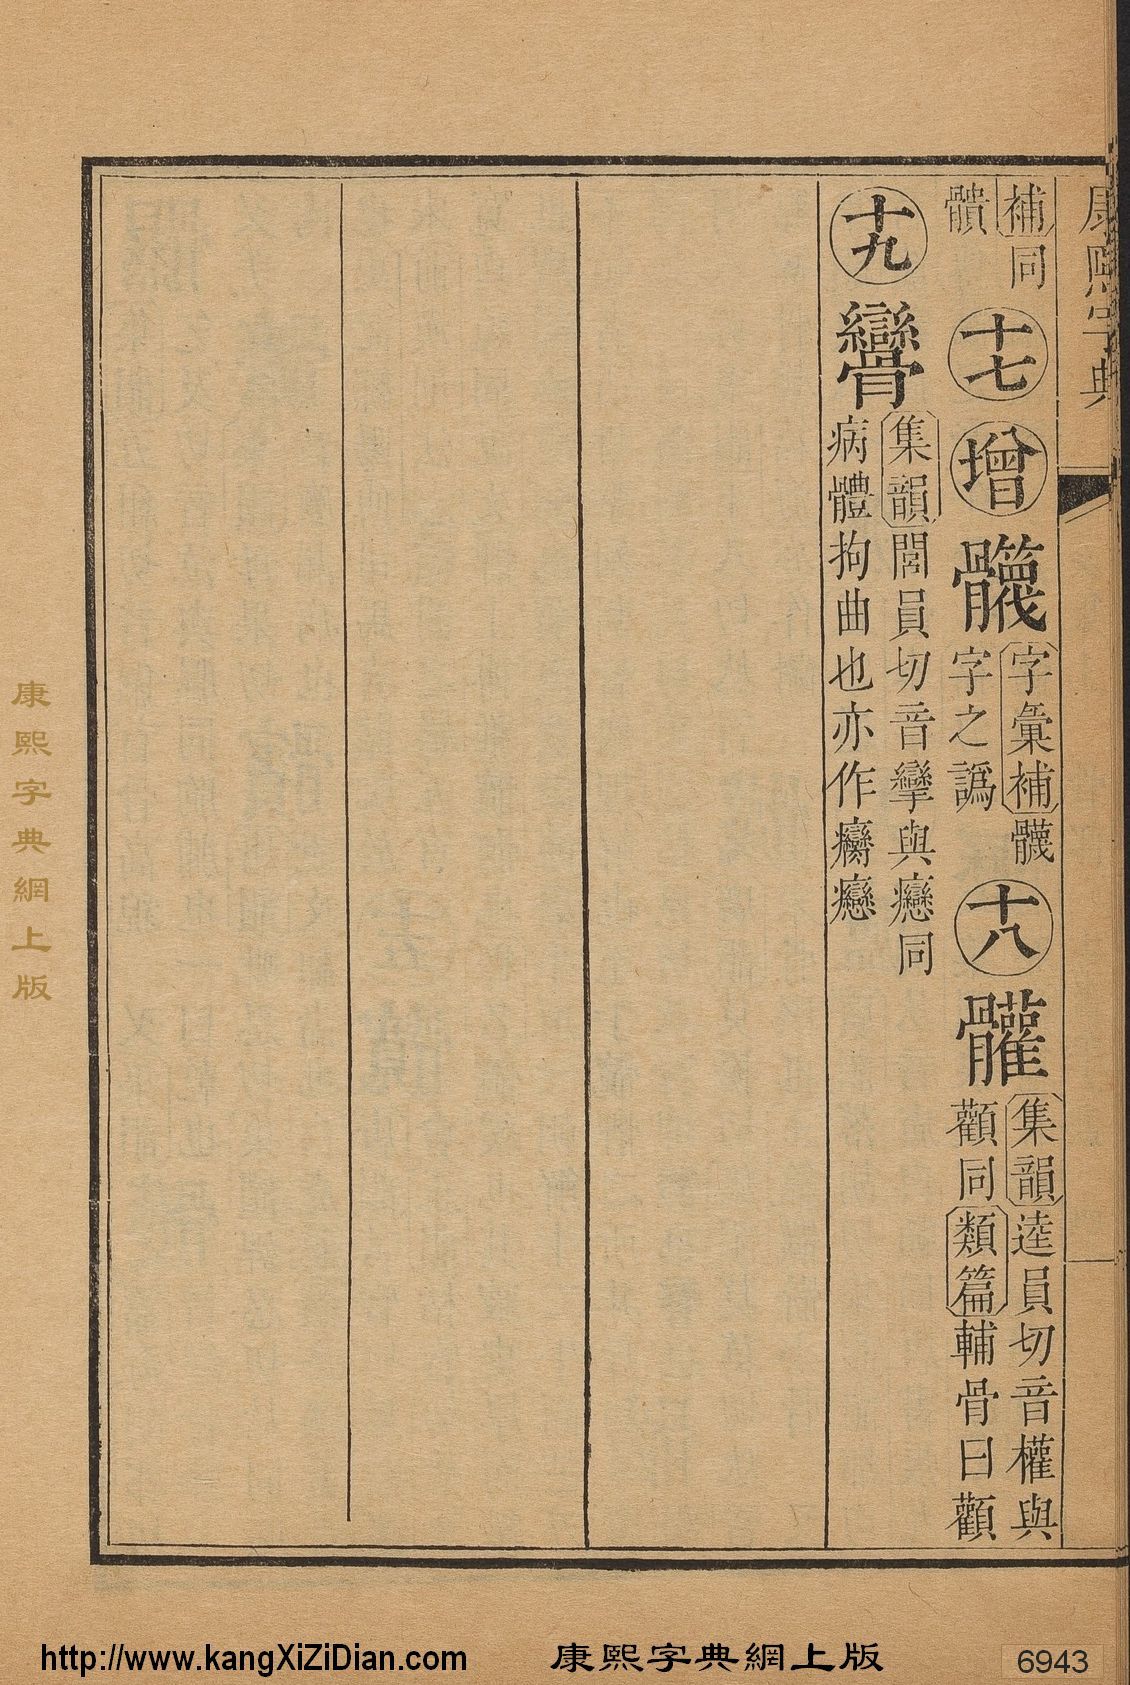 康熙字典
補同
髖
十七
增
字彙補髖
字之譌
十八
集韻逵員切音權與
顴同類篇輔骨曰顴
十九
集韻閭員切音攣與癵同
病體拘曲也亦作癴癵
康熙字典網上版
http://www.kangXiZiDian.com
康熙字典網上版
6943